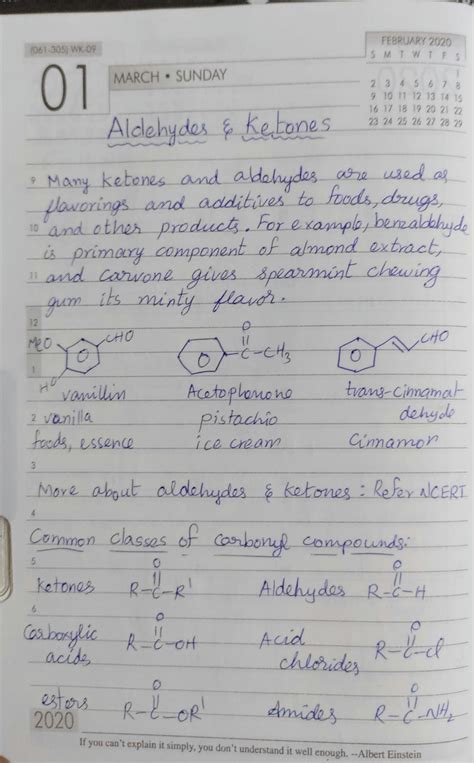 (061-305) WK-09
01
MARCH • SUNDAY
FEBRUARY 2020
S M T W T F S
2 3 4 5 6 7 8
9 10 11 12 13 14 15
16 17 18 19 20 21 22
23 24 25 26 27 28 29
Aldehydes & Ketones
9 Many ketones and aldehydes are used as
flavorings and additives to foods, drugs,
10 and other products. For example, benzaldehyde
is primary component of almond extract,
11 and carvone gives spearmint chewing
gum its minty flavor.
12
MeO CHO O || C-CH3 CHO
1
HO
vanillin Acetophenone trans-cinnamal
dehyde
2 vanilla pistachio
foods, essence ice cream Cinnamon
3
More about aldehydes & ketones : Refer NCERT
4
Common classes of carbonyl compounds:
5
Ketones R-C(=O)-R' Aldehydes R-C(=O)-H
6
Carboxylic acids R-C(=O)-OH Acid chlorides R-C(=O)-Cl
esters R-C(=O)-OR' Amides R-C(=O)-NH2
2020
If you can't explain it simply, you don't understand it well enough. --Albert Einstein